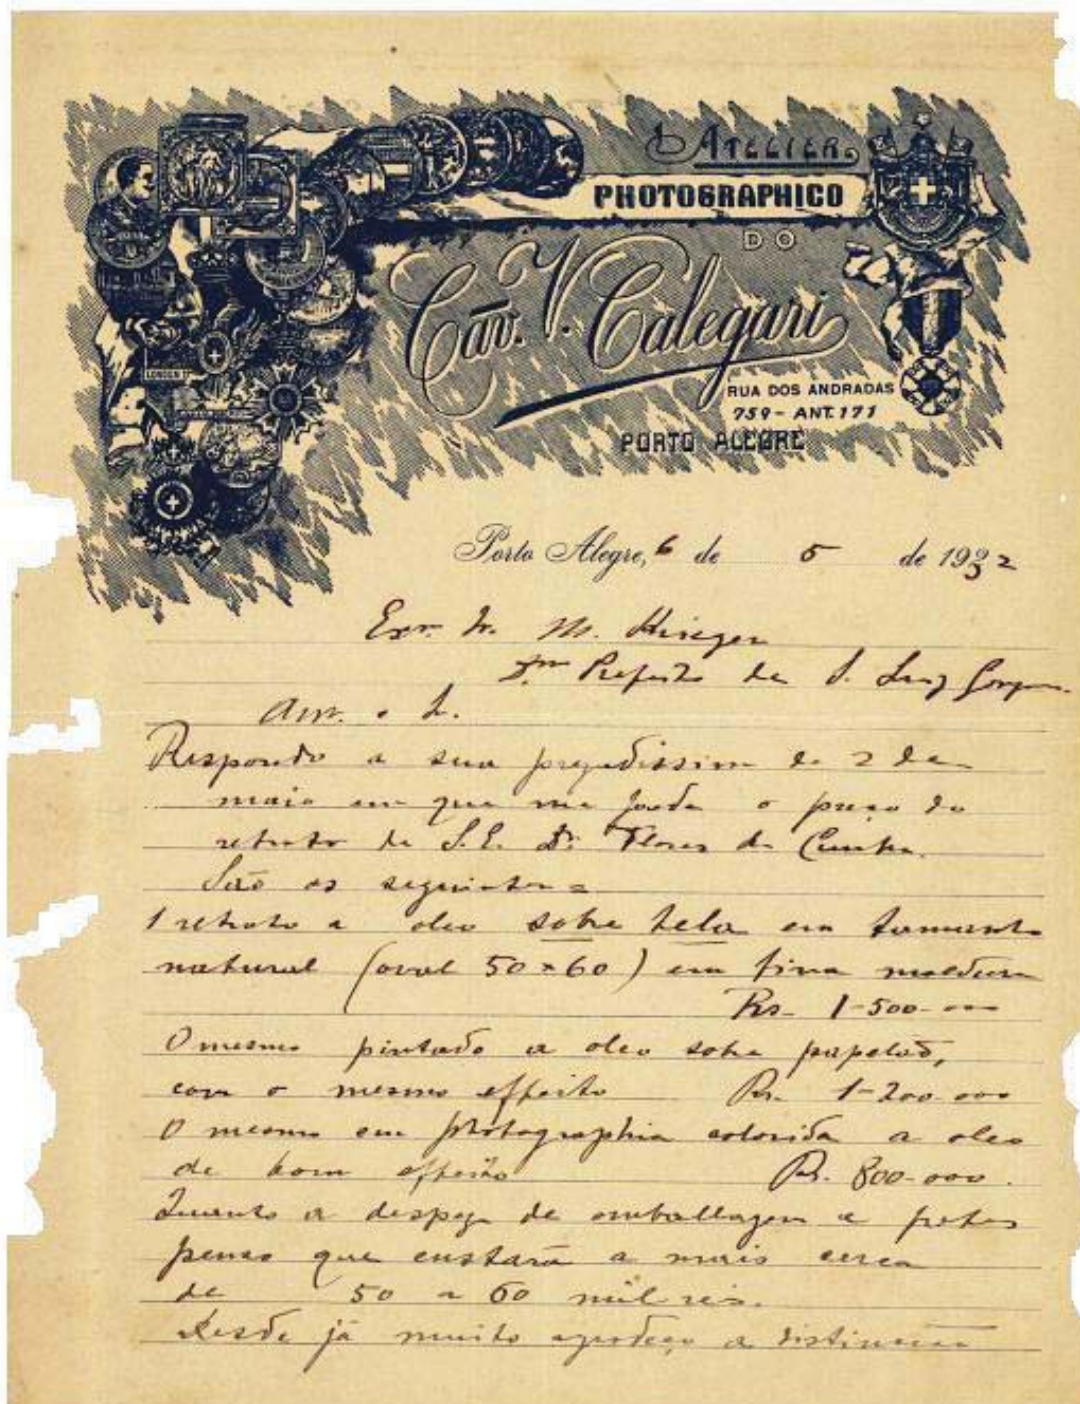 ATELIER
PHOTOGRAPHICO
DO
Cav. V. Calegari
RUA DOS ANDRADAS
759 - ANT. 171
PORTO ALEGRE
LONDON
Porto Alegre, 6 de 5 de 1932
Exr. Sr. M. Krieger
Dm Prefeito de S. Luiz
Am. e
Respondo a sua prezadissima de 2 de
maio em que me pede o preço do
retrato de S. E. Dr. Flores da Cunha.
São os seguintes =
1 retrato a oleo sobre tela em tamanho
natural (oval 50 x 60) em fina moldura
Rs. 1-500-000
O mesmo pintado a oleo sobre papelão,
com o mesmo effeito Rs. 1-200-000
O mesmo em photographia colorida a oleo
de bom effeito Rs. 800-000.
Quanto a despeza de emballagem e fretes
penso que custará a mais cerca
de 50 a 60 mil reis.
Desde já muito agradeço a distincção